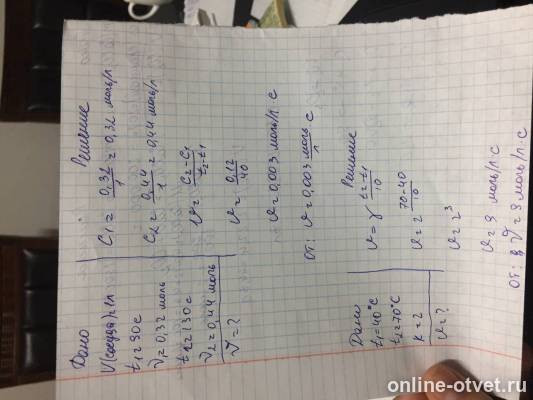 Дано
V(сосуда)=1л
t₁=90с
ν₁=0,32 моль
t₂=130с
ν₂=0,44 моль
v=?
Решение
C₁ = 0,32/1 = 0,32 моль/л
C₂ = 0,44/1 = 0,44 моль/л
v = C₂-C₁/t₂-t₁
v = 0,12/40
v = 0,003 моль/л·с
От: v = 0,003 моль/л с
Дано
t₁=40°C
t₂=70°C
K=2
v=?
Решение
v = γ t₂-t₁/10
v = 2 70-40/10
v = 2³
v = 9 моль/л·с
От: v = 9 моль/л·с
online-otvet.ru